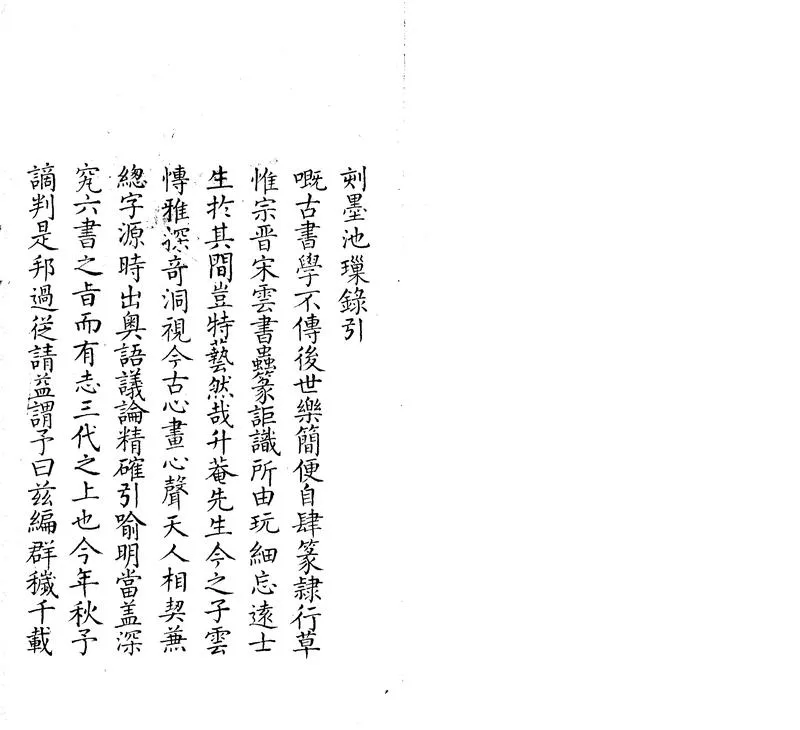 刻墨池璅錄引
嘅古書學不傳後世樂簡便自肆篆隷行草
惟宗晋宋雲書蟲篆詎識所由玩細忘逺士
生扵其間豈特藝然哉升菴先生今之子雲
愽雅深竒洞視今古心畫心聲天人相契蕪
緫字源時出奥語議論精確引喻明當盖深
究六書之㫖而有志三代之上也今年秋予
謫判是邦過従請益謂予曰兹編群穢千載